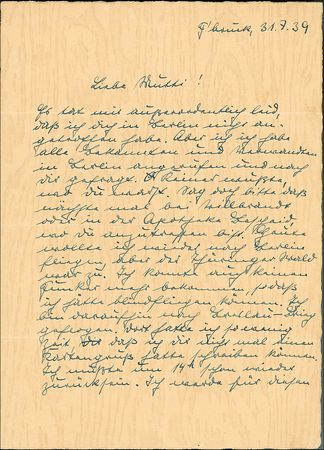 F'bruck, 31.7.39
Liebe Mutti!
Es tat mir außerordentlich leid,
daß ich dich in Berlin nicht an-
getroffen habe. Aber ich habe
alle Bekannten und Verwandten
in Berlin angerufen und nach
dir gefragt. Keiner wußte
wo du warst. Sag doch bitte das
nächste mal bei Hillbrandt
oder in der Apotheke Bescheid,
wo du anzutreffen bist. Heute
wollte ich wieder nach Berlin
fliegen, aber der Thüringer Wald
war zu. Ich konnte auch keinen
Funker mehr bekommen, sodaß
ich hätte blindfliegen können. Ich
bin daraufhin nach Breslau
geflogen. Dort hatte ich so wenig
Zeit, daß ich dir nicht mal einen
Kartengruß hatte schreiben können.
Ich mußte um 14h schon wieder
zurücksein. Ich werde für diesen